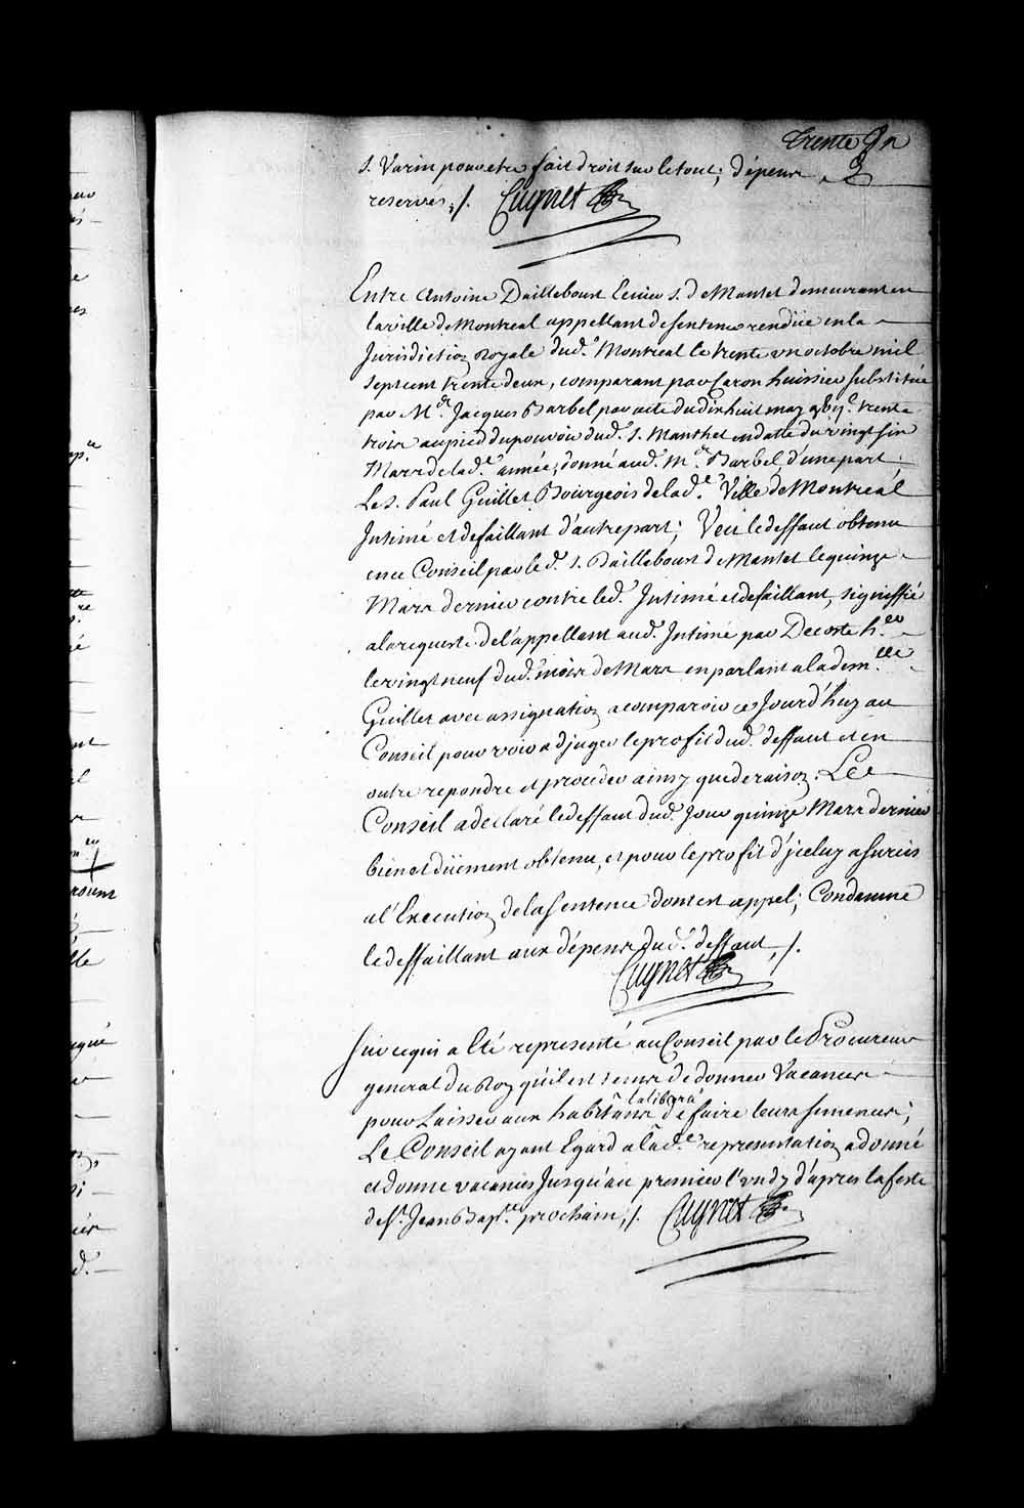 trente Un
S. Varin pour etre fait droit sur le tout; dépens
reservés ./. Cugnet
Entre Antoine Dailleboust Ecuier S. de Mantet demeurant en
la ville de Montreal appellant de sentence rendüe en la
Jurisdiction Royale dud.t Montreal le trente un octobre mil
sept cent trente deux, comparant par Caron huissier substitué
par M.e Jacques Barbel par acte du dix huit may trente
trois au pied du pouvoir dud. S. Manthet en datte du vingt six
Mars de lad.e année, donné aud. M.e Barbel, d'une part;
Le S. Paul Guillet Bourgeois de lad.e Ville de Montreal
Intimé et defaillant d'autre part; Veu le deffaut obtenu
en ce Conseil par led. S. Dailleboust de Mantet le quinze
Mars dernier contre led. Intimé et defaillant, signiffié
a la requeste de l'appellant aud. Intimé par Decoste h.er
le vingt neuf dud. mois de Mars en parlant a la dem.lle
Guillet avec assignation a comparoir ce Jourd'huy au
Conseil pour voir adjuger le profit dud. deffaut et en
outre repondre et proceder ainsy que de raison. Le
Conseil a declaré le deffaut dud. Jour quinze Mars dernier
bien et düement obtenu, et pour le profit d'jceluy a surcis
a l'Execution de la sentence dont est appel; Condamne
le deffaillant aux dépens dud. deffaut ./.
Cugnet
Sur ce qui a Eté representé au Conseil par le Procureur
general du Roy qu'il est tems de donner Vacances
pour Laisser aux habitans la liberté de faire leurs semences;
Le Conseil ayant Egard a lad.e representation a donné
et donne vacances Jusqu'au premier l'undy d'apres la feste
de S.t Jean Bap.te prochain ./. Cugnet